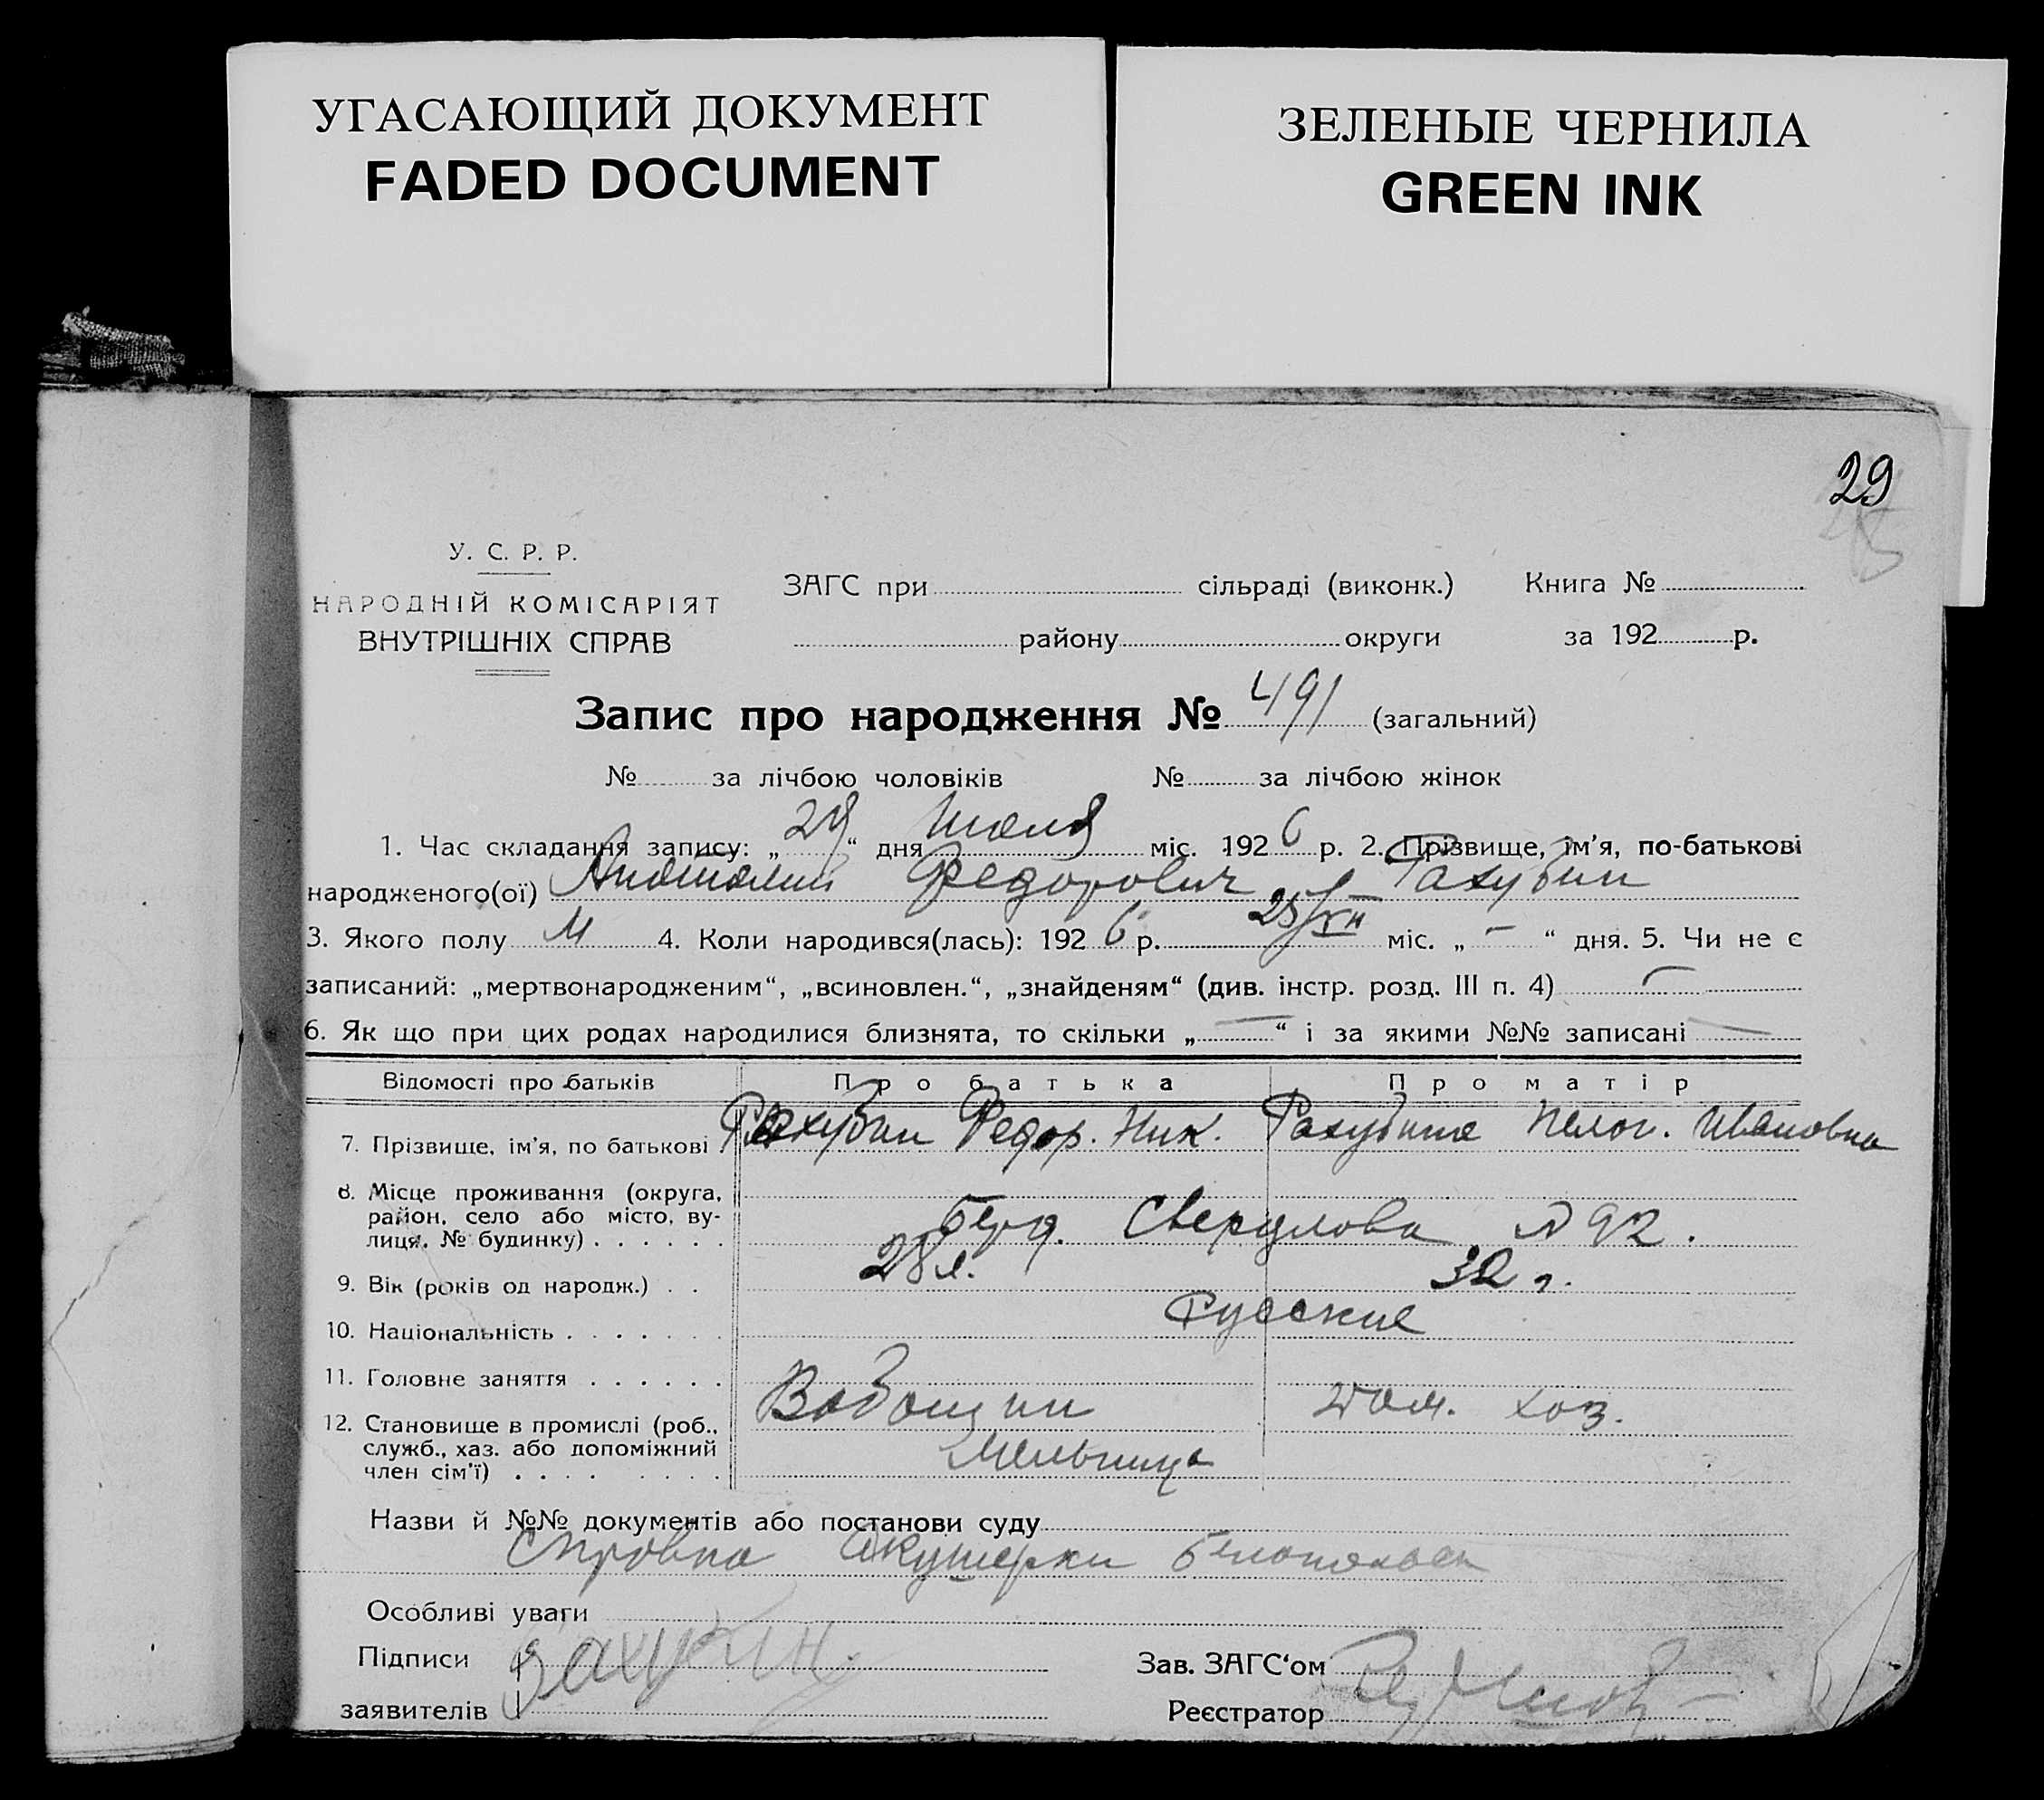 УГАСАЮЩИЙ ДОКУМЕНТ
FADED DOCUMENT
ЗЕЛЕНЫЕ ЧЕРНИЛА
GREEN INK
29
У. С. Р. Р.
НАРОДНІЙ КОМІСАРІЯТ
ВНУТРІШНІХ СПРАВ
ЗАГС при сільраді (виконк.) Книга №
району округи за 192 р.
Запис про народження № 491 (загальний)
№ за лічбою чоловіків № за лічбою жінок
1. Час складання запису: „ “ дня Июля міс. 1926 р. 2. Прізвище, ім'я, по-батькові
народженого(ої) Анатолий Федорович Рахубин
3. Якого полу М 4. Коли народився(лась): 1926 р. міс. „ – “ дня. 5. Чи не є
записаний: „мертвонародженим“, „всиновлен.“, „знайденям“ (див. інстр. розд. III п. 4) —
6. Як що при цих родах народилися близнята, то скільки „ — “ і за якими №№ записані —
Відомості про батьків Про батька Про матір
7. Прізвище, ім'я, по батькові Рахубин Федор. Ник. Рахубина Пелог. Ивановна
8. Місце проживання (округа,
район, село або місто, ву-
лиця, № будинку) . . . . . . Берд. Свердлова №92.
9. Вік (років од народж.) . . 28 л. 32 г.
10. Національність . . . . . . . Русские
11. Головне заняття . . . . . . дом. хоз.
12. Становище в промислі (роб.,
служб., хаз. або допоміжний
член сім'ї) . . . . . . . . Мельница
Назви й №№ документів або постанови суду
Справка Акушерки
Особливі уваги
Підписи
заявителів
Зав. ЗАГС‘ом
Реєстратор